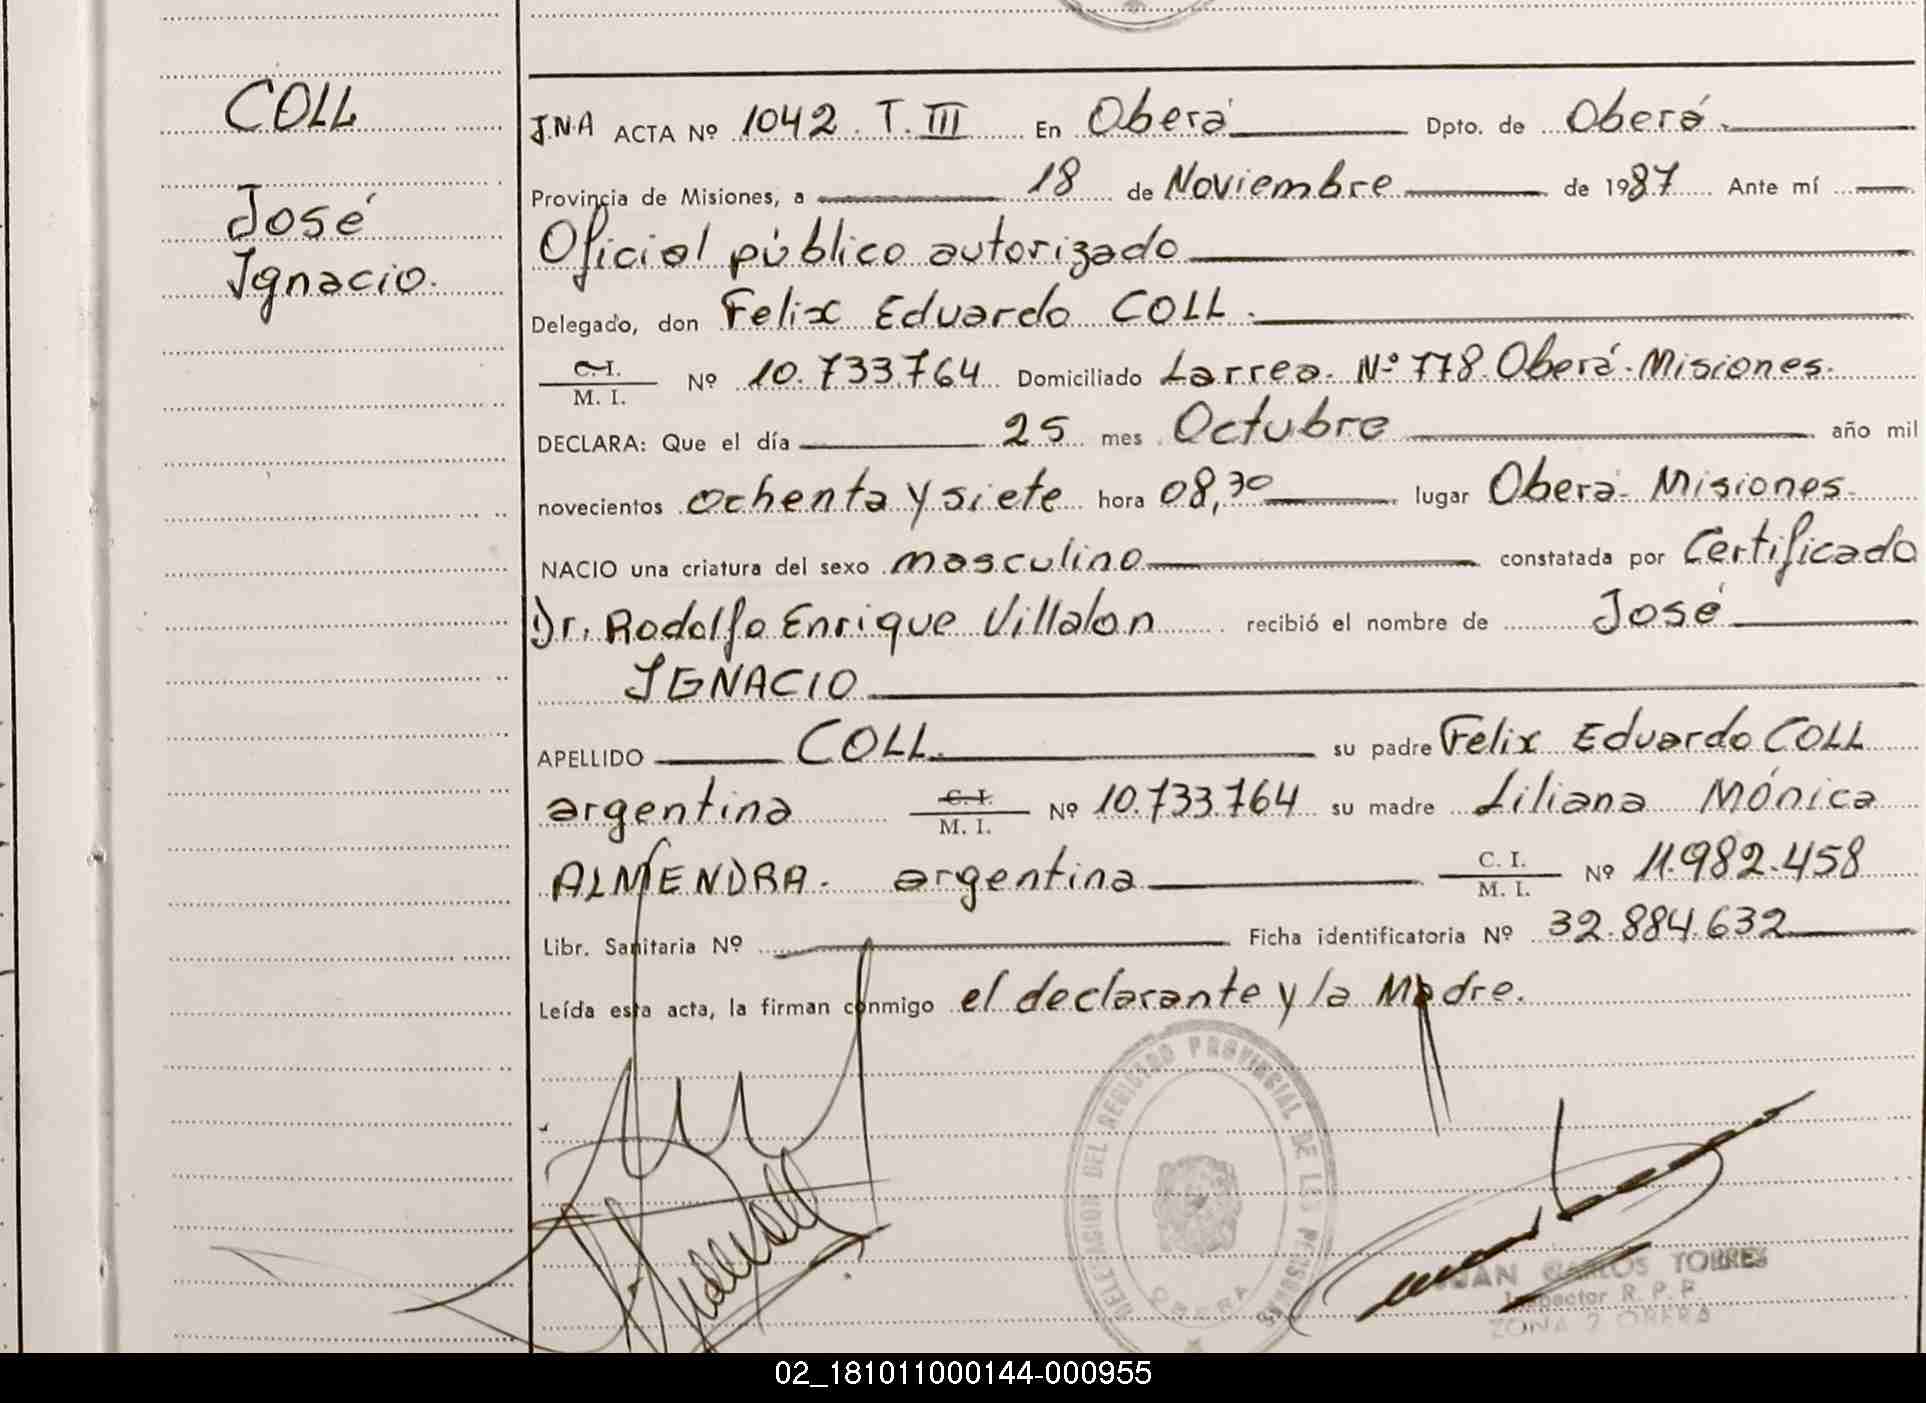 COLL
José
Ignacio.
J.N.A ACTA Nº 1042. T. III En Oberá Dpto. de Oberá.
Provincia de Misiones, a 18 de Noviembre de 1987 Ante mí
Oficial público autorizado
Delegado, don Felix Eduardo COLL.
C.I. / M. I. Nº 10.733.764 Domiciliado Larrea. Nº 778. Oberá. Misiones.
DECLARA: Que el día 25 mes Octubre año mil
novecientos ochenta y siete hora 08,30 lugar Oberá- Misiones.
NACIO una criatura del sexo masculino constatada por Certificado
Dr. Rodolfo Enrique Villalon recibió el nombre de José
IGNACIO
APELLIDO COLL. su padre Felix Eduardo COLL
argentina C. I. / M. I. Nº 10.733.764 su madre Liliana Mónica
ALMENDRA. argentina C. I. / M. I. Nº 11.982.458
Libr. Sanitaria Nº Ficha identificatoria Nº 32.884.632
Leída esta acta, la firman conmigo el declarante y la Madre.
DELEGASION DEL REGISTRO PROVINCIAL DE LAS PERSONAS
OBERA
JUAN CARLOS TORRES
Inspector R. P. P.
ZONA 2 OBERA
02_181011000144-000955